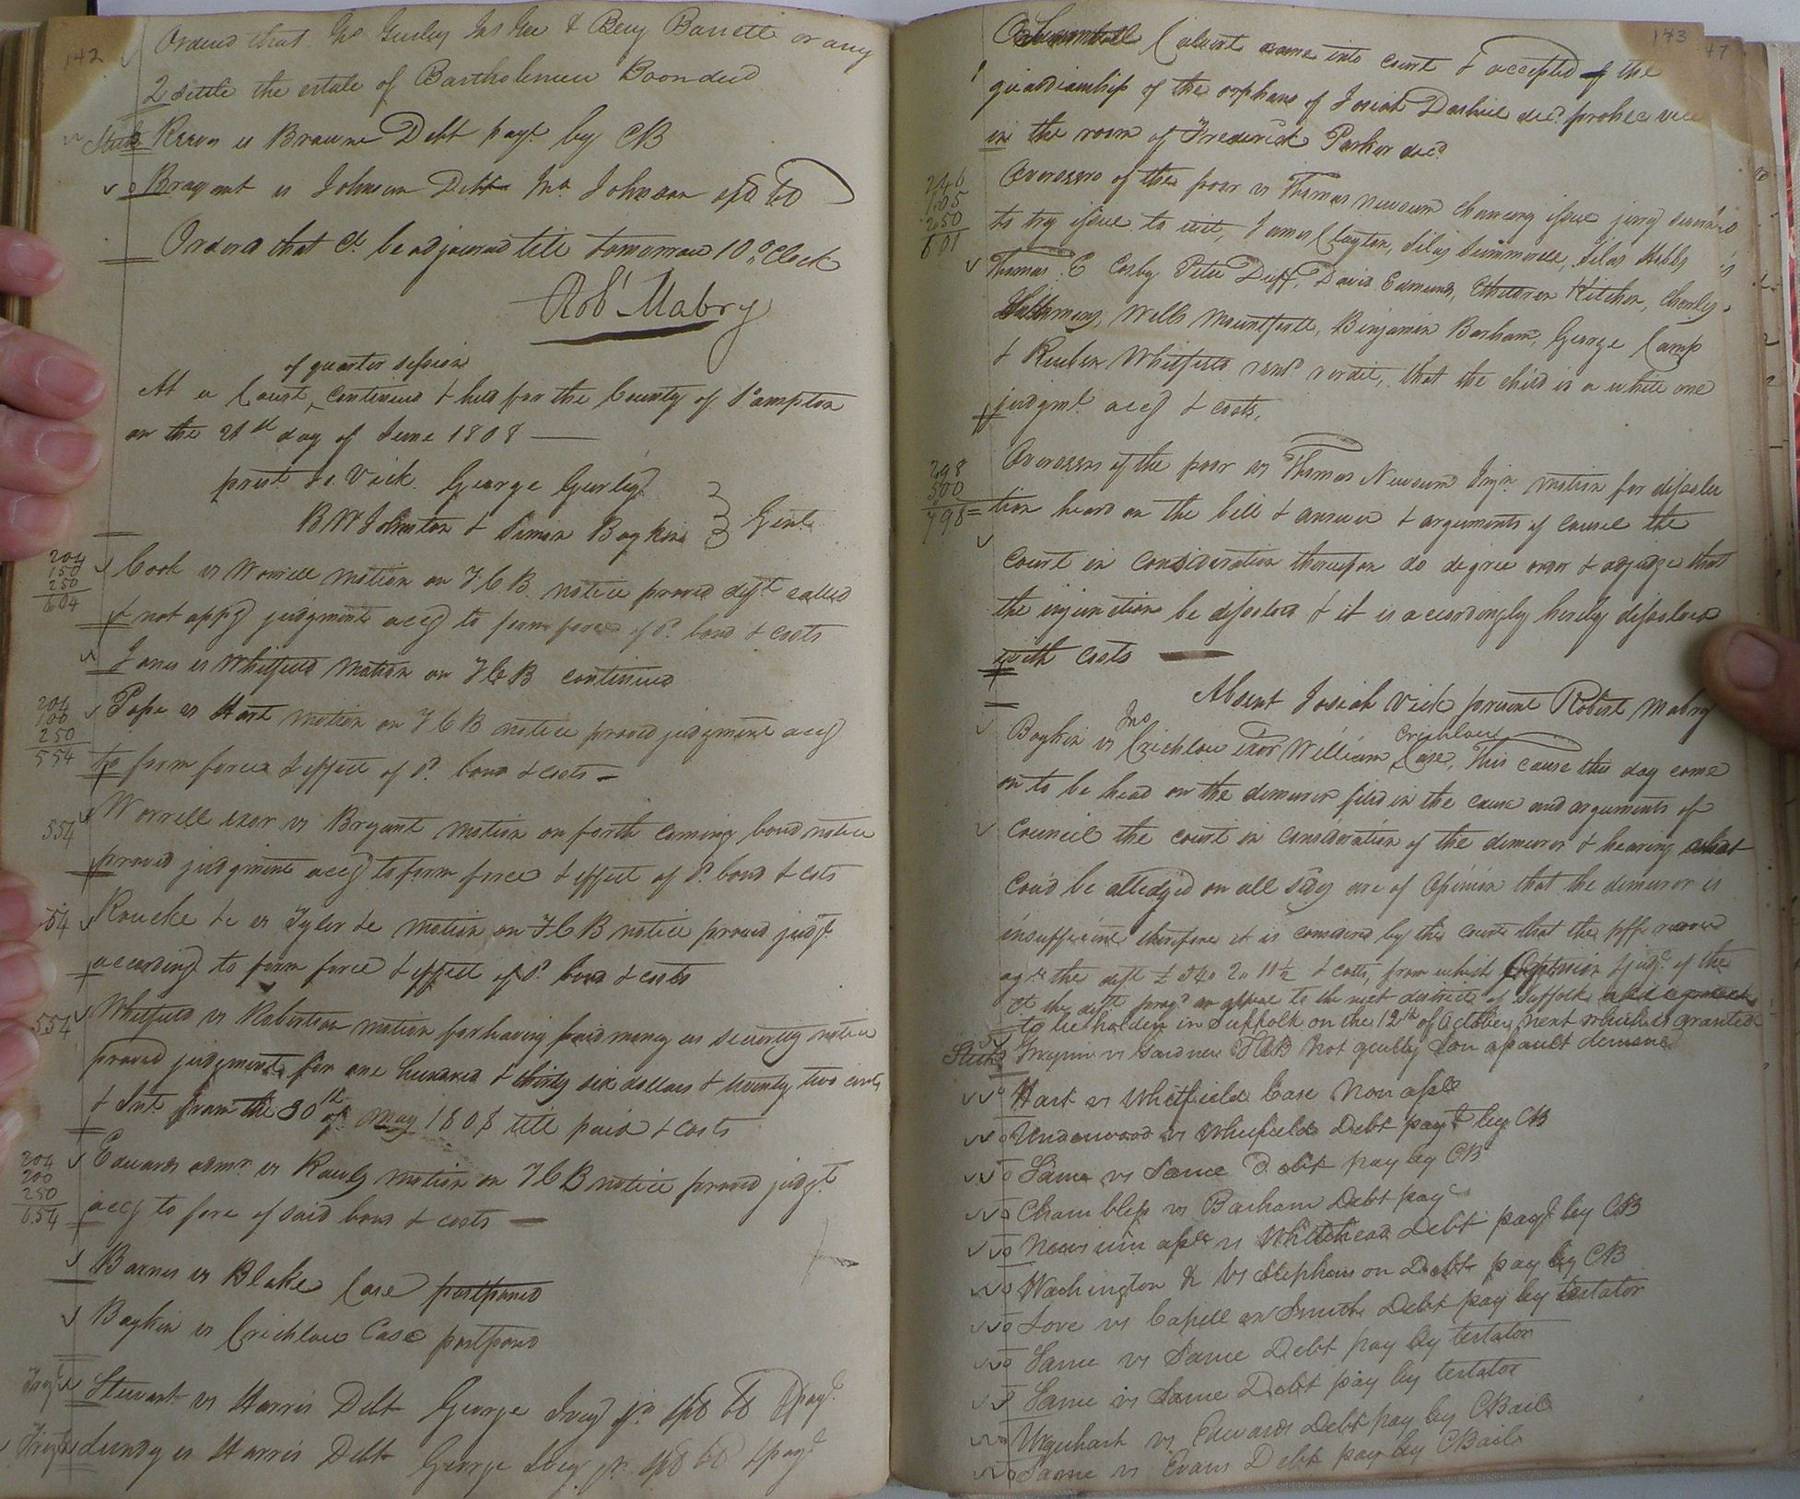 142
Ordered that Jno Gurley Jas Gee & Benj Barrett or any
2 settle the estate of Bartholomew Boon decd
vs Browne Debt payt by CB
Bryant vs Johnson Debt Jno Johnson
Ordered that Ct be adjourned till tomorrow 10 o Clock
Robt Mabry
of quarter session
At a Court, continued & held for the County of S'ampton
on the 21st day of June 1808
prest Jo. Vick George Gurley
B W Johnston & Simon Boykin } Gent
204
150
250
604
Cook vs Worrell motion on F C B notice proved deft called
& not appg judgment accg to form force of sd bond & costs
Jones vs Whitfield motion on F C B continued
204
100
250
554
Pope vs Hart motion on F C B notice proved judgment accg
to form force & effect of sd bond & costs
554
Worrell exor vs Bryant motion on forth coming bond notice
proved judgment accg to form force & effect of sd bond & costs
554
vs Tyler &c motion on F C B notice proved judgt
according to form force & effect of sd bond & costs
554
Whitfield vs Robertson motion for having paid money as security notice
proved judgment for one hundred & thirty six dollars & twenty two cents
& Int. from the 30th of may 1808 till paid & costs
204
200
250
654
Edwards admr vs motion on F C B notice proved judgt
accg to force of said bond & costs
Barnes vs Blake Case postponed
Boykin vs Crichlow Case postpond
Stewart vs Harris Debt George Ivey jr
Lundy vs Harris Debt George Ivey jr
143
47
Calvert came into court & accepted of the
guardianship of the orphans of Josiah decd
in the room of Frederick Parker decd
246
105
250
601
Overseers of the poor vs Thomas Newsum chancery issue jury
to try issue to wit, James Clayton, Silas Summerell, Silas
Thomas C Cosby Peter Duff, David Edmunds, Kitchen, Charles
Wells Mountfortt, Benjamin Barham, George Camp
& Reuben Whitfield verdict, that the child is a white one
judgmt accg & costs,
298
500
798
Overseers of the poor vs Thomas Newsum Injn motion for dissolu
tion heard on the bill & answer & arguments of councel the
court in consideration thereupon do degree order & adjudge that
the injunction be dissolved & it is accordingly hereby dissolved
with costs
Absent Josiah Vick present Robert Mabry
Jno
Crichlow
Boykin vs Crichlow exor William Case, This cause this day come
on to be head on the demurer filed in the cause and arguments of
Council the court in consideration of the demurer & hearing what
could be alledged on all sides are of Opinion that the demurer is
insufficient therefore it is considered by the court that the
agst the deft & costs, from which Opinion & judgt of the
Ct the deft an appeal to the next district Ct of Suffolk
to be holden in Suffolk on the 12th of October next which is granted
vs Gardner not guilty Son assault demesne
Hart vs Whitfield Case Non asst
Underwood vs Whitfield Debt payt by CB
Same vs Same Debt pay by CB
Chambless vs Barham Debt payt
Newsum vs Whitehead Debt payt by CB
Washington & vs Stephenson Debt pay by CB
Love vs Capell exr Smith Debt pay by testator
Same vs Same Debt pay by testator
Same vs Same Debt pay by testator
Urquhart vs Edwards Debt pay by CBail
Same vs Evans Debt pay by CBail